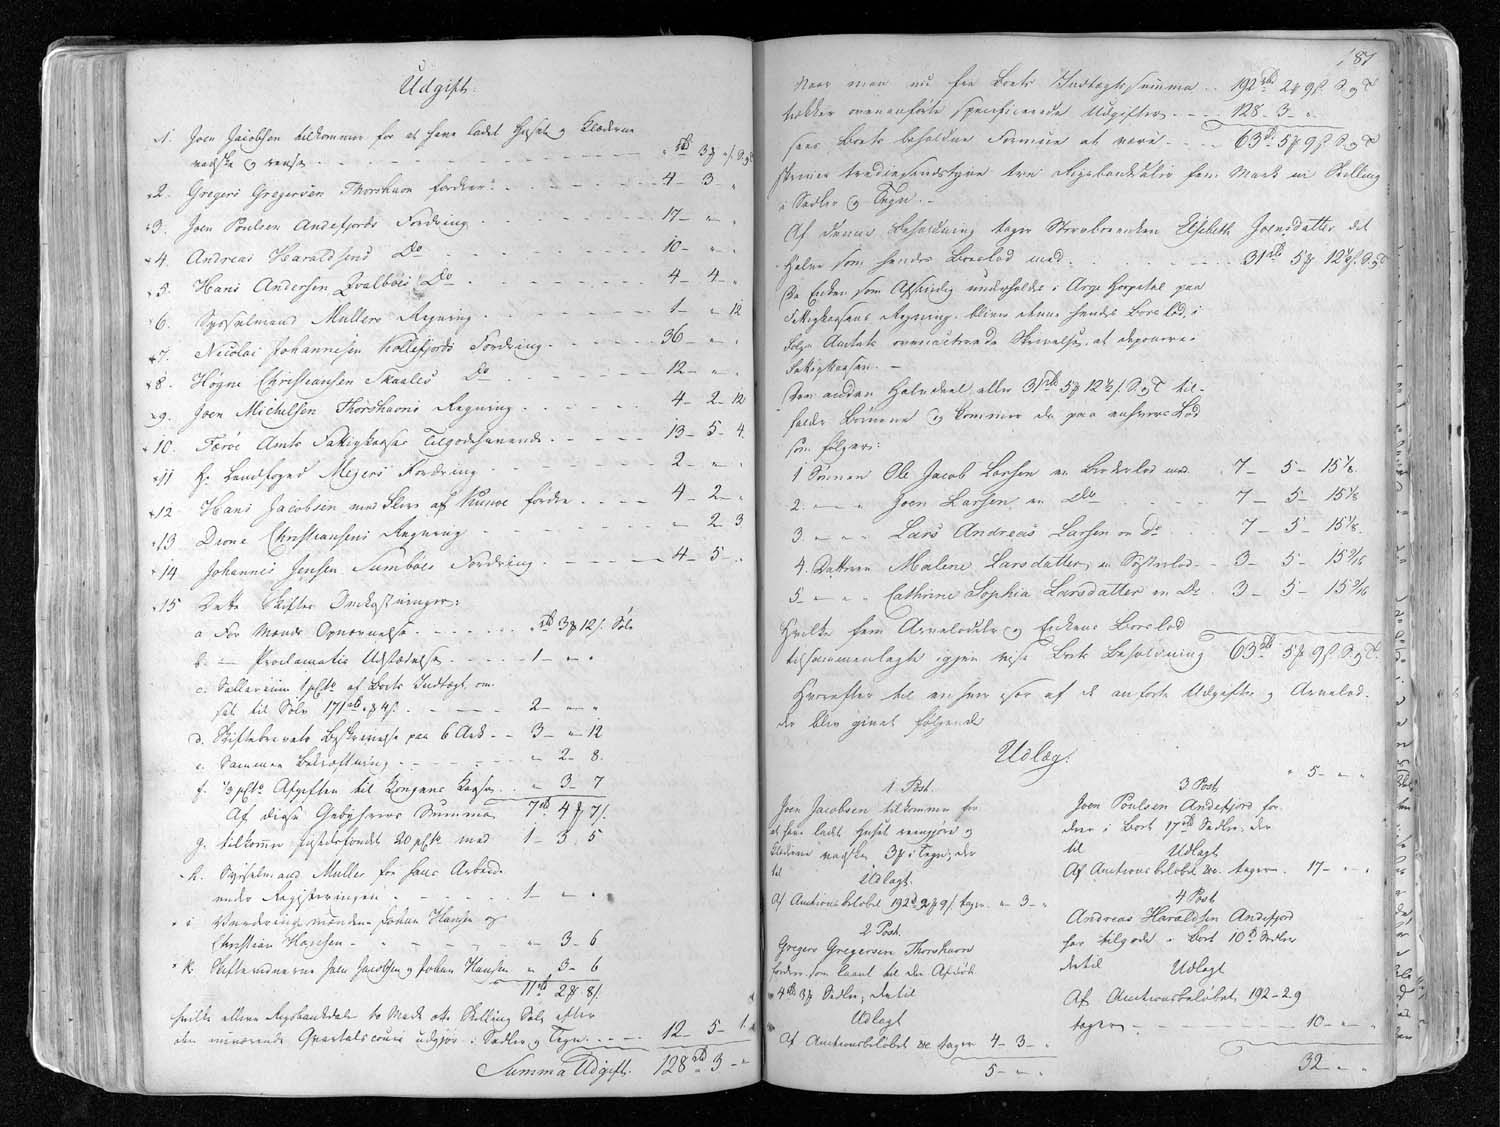 Udgift.
1. Joen Jacobsen tilkommer for at have ladet Huset og Klæderne
vadske og rense " rbd 3 ß "/ S. og T.
2. Gregers Gregersen Thorshavn fordrer: 4 – 3 – "
3. Joen Poulsen Andefjords Fordring 17 – " – "
4. Andreas Haraldsens Do 10 – " – "
5. Hans Andersen Qvalböes Do 4 – 4 – "
6. Sysselmand Müllers Regning 1 – " – 12
7. Nicolai Johannesen Kollefjords Fordring 36 – " – "
8. Högne Christiansen Skaales Do 12 – " – "
9. Joen Michelsen Thorshavns Regning 4 – 2 – 12
10. Færöe Amts Fattigkasses Tilgodehavende 13 – 5 – 4
11 Hr Landfoged Mejers Fordring 2 – " – "
12 Hans Jacobsen med Skers af Kunoe fordrer 4 – 2 – "
13 Christiansens Regning " – 2 – 3
14 Johannes Jensen Sumböes Fordring 4 – 5 – "
15 Dette Skiftes Omkostninger:
a For Mænds Opnævnelse " rbd 3 ß 12/ Sölv
b. – Proclamatis Udstædelse 1 – " – "
c. Sallarium 1 pCto af Boets Indtægt, om-
sat til Sölv 171 rbd " ß 4/ 2 – " – "
d. Skiftebrevets Beskrivelse paa 6 Ark 3 – " – 12
e. Sammes Bekræftning " – 2 – 8.
f. ½ pCto Afgiften til Kongens Kasse " – 3 – 7
Af disse Gebyhrers Summa 7 rbd 4 ß 7/.
g. tilkommer Justitsfondet 20 pCto med 1 – 3 – 5
h. Sysselmand Müller for hans Arbeide
under Registeringen 1 – " – "
i Vurderingsmændene Johan Hansen og
Christian Hansen " – 3 – 6
k. Skiftevidnerne Joen Jacobsen og Johan Hansen " – 3 – 6
11 rbd 2 ß 8/.
hvilke elleve Rigsbankdaler to Mark otte Skilling Sölv efter
den nuværende Qvartalscours udgjör i Sedler og Tegn 12 – 5 – 1
Summa Udgift. 128 rbd 3 – "
187
Naar man nu fra Boets Indtægtssumma 192 rbd 2 ß 9/ S. og T
trækker ovenanförte specificerede Udgifter 128 – 3 – "
sees Boets beholdne Formue at være 63 rbd 5 ß 9/ S. og T.
skriver tredsindstyve tre Rigsbankdaler fem Mark ni Skilling
i Sedler og Tegn. –
Af denne Beholdning tager Stervboeenken Elisabeth Joensdatter det
Halve som hendes Boeslod med 31 rbd 5 ß 12½/. S. og T
Da Enken som Afsindig underholdes i Arge Hospital paa
Fattigkassens Regning, bliver denne hendes Boeslod, i
Fölge Amtets Skrivelse, at deponere i
Fattigkassen. –
Den anden Halvdeel eller 31 rbd 5 ß 12½/. S. og T til-
falder Börnene og kommer da paa enhvers Lod
som fölger:
1 Sönnen Ole Jacob Larsen en Broderlod med 7 – 5 – 15⅛
2. – " – Joen Larsen en Do 7 – 5 – 15⅛
3 – " – Lars Andreas Larsen en Do 7 – 5 – 15⅛.
4. Datteren Malene Larsdatter en Sösterlod 3 – 5 – 15 9/16
5 – " – Cathrine Sophia Larsdatter en Do 3 – 5 – 15 9/16
Hvilke fem Arvelodder og Enkens Boeslod
tilsammenlagte igjen vise Boets Beholdning 63 rbd 5 ß 9/. S. og T.
Hvorefter til enhver især af de anförte Udgifter og Arvelod-
der blev givet fölgende
Udlæg:
1 Post.
Joen Jacobsen tilkommer for
at have ladet Huset reengjöre og
Klæderne vadske 3 ß i Tegn; der
til Udlagt.
Af Auctionsbelöbet 192 rd 2 ß 9/ tager " – 3 – "
2. Post.
Gregers Gregersen Thorshavn
fordrer som laant til den Afdöde
4 rbd 3 ß Sedler, dertil
Udlagt
Af Auctionsbelöbet &c tager 4 – 3 – "
5 – " – "
" 5 – " – "
3 Post.
Joen Poulsen Andefjord for-
drer i Boet 17 rbd Sedler, der
til Udlagt
Af Auctionsbelöbet &c. tages 17 – " – "
4 Post
Andreas Haraldsen Andefjord
har tilgode i Boet 10 rd Sedler
dertil Udlagt
Af Auctionsbelöbet 192 – 2 9
tages 10 – " – "
32 – " – "